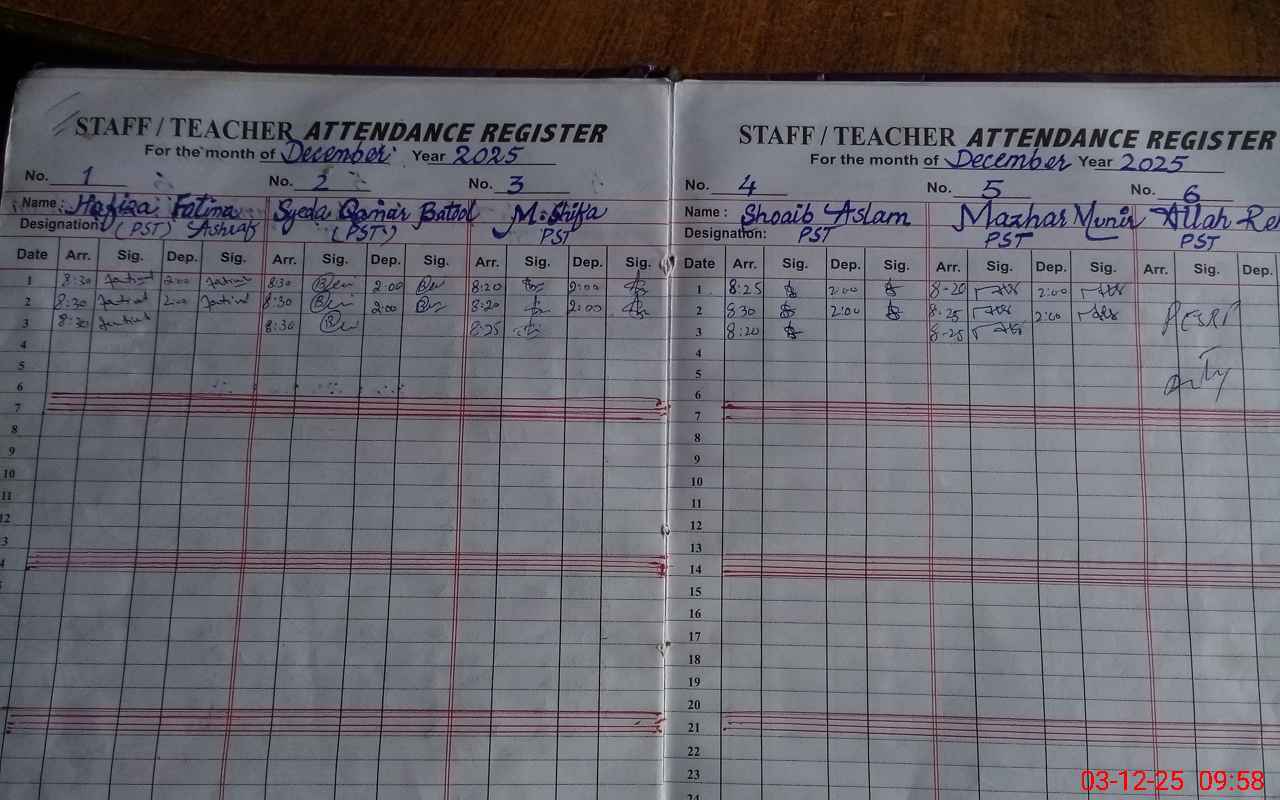 STAFF / TEACHER ATTENDANCE REGISTER
For the month of December Year 2025
No. 1 No. 2 No. 3
Name : Hafiza Fatima Syeda Qamar Batool M. Shifa
Designation: (PST) Ashraf (PST) PST
Date Arr. Sig. Dep. Sig. Arr. Sig. Dep. Sig. Arr. Sig. Dep. Sig.
1 8:30 2:00 8:30 2:00 8:20 2:00
2 8:30 2:00 8:30 2:00 8:20 2:00
3 8:30 8:30 8:25
4
5
6
7
8
9
10
11
12
3
4
STAFF / TEACHER ATTENDANCE REGISTER
For the month of December Year 2025
No. 4 No. 5 No. 6
Name : Shoaib Aslam Mazhar Munir Allah Re
Designation: PST PST PST
Date Arr. Sig. Dep. Sig. Arr. Sig. Dep. Sig. Arr. Sig. Dep.
1 8:25 2:00 8-20 2:00
2 8:30 2:00 8-25 2:00
3 8:20 8-25
4
5
6
7
8
9
10
11
12
13
14
15
16
17
18
19
20
21
22
23
24
03-12-25 09:58